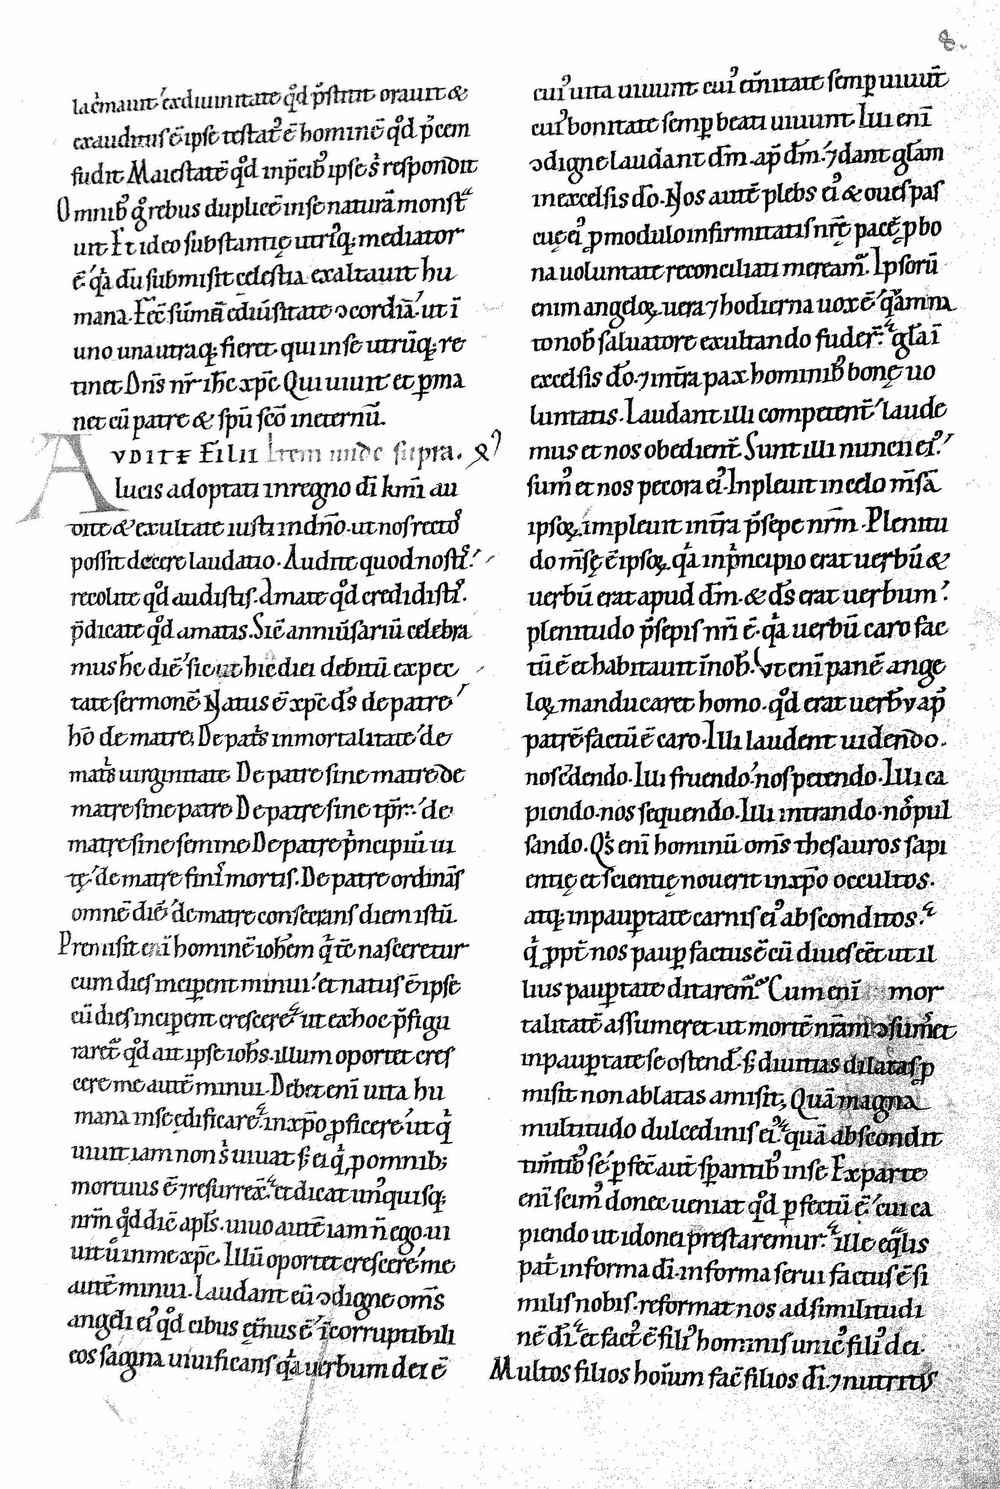 8.
lac̄mauit ́ex diuinitate qd̊ p̄stitit orauit &
exauditus ē ipse testat᷒ ē hominē qd̊ p̄cem
fudit Maiestatē qd̊ in p̄cib᷒ ipse s᷒ respondit
Omnib᷒ g̊ rebus duplicē in se naturā monst
uit Et ideo substantię utriꝰq; mediator
ē ́qa dū submisit celestia exaltauit hu
mana. Fec̄ sūmā cū diūsitate ɔcordiā ́ut ī
uno una utraq; fieret qui in se utrūq; re
tinet Dn̄s nr̄ ih̄c xp̄c Qui uiuit et ꝑma
net cū patre & sp̄u sc̄o in eternū.
AVDITE FILII Item unde supra.
lucis adoptati in regno dī km̄i au
dite & exultate iusti in dn̄o. ut nos recto᷒
possit decere laudatio. Audite quod nosti᷒
recolite qd̊ audistis. Amate qd̊ credidisti᷒.
p̄dicate qd̊ amatis. Sic̄ anniūsariū celebra
mus h̄c diē ́sic ut hic diei debitū expec
tate sermonē Natus ē xp̄c ds̄ de patre ́
hō de matre; De pat᷒s inmortalitate ́de
mat᷒s uirginitate De patre sine matre de
matre sine patre De patre sine tp̄r ́de
matre sine semine De patre p̄ncipiū ui
tę ́de matre finī mortis. De patre ordinās
omnē diē ́de matre consecrans diem istū.
Premisit enī hominē ioh̄em q̄ tc̄ nasceretur
cum dies inciꝑent minui ́et natus ē ipse
cū dies inciꝑent crescere ́ut ex hoc p̄figu
raret᷒ qd̊ ait ipse ioh̄s. illum oportet cres
cere me autē minui. Debet enī uita hu
mana in se dificare in xp̄o ꝓficere ́ut q̄
uiuit iam non s᷒ uiuat s; ei q̄ ꝓ omnib;
mortuus ē ⁊ resurrex᷒. et dicat un᷒quisq;
nr̄m qd̊ dic̄ apl̄s. uiuo autē iam n̄ ego. ui
uit ů in me xp̄c. Illū oportet crescere ́me
autē minui. Laudant eū ɔdigne om̄s
angeli ei᷒ qd̊ cibus et̄nus ē ́īcorruptibili
eos sagina uiuificans qa uerbum dei ē
cui᷒ uita uiuunt cui᷒ et̄nitate semꝑ uiuut̄
cui᷒ bonitate semꝑ beati uiuunt. Illi enī
ɔdigne laudant dm̄ ap᷒ dm̄. ⁊ dant glām
in excelsis dō. Nos autē plebs ei᷒ & oues pas
cuę ei᷒ ꝓ modulo infirmitatis nrē pacē ꝑ bo
na uoluntate reconciliati meream᷒. Ipsorū
enim angeloꝝ uera ⁊ hodierna uox ē ́q̄m na
to nob᷒ saluatore exultando fuder᷒. glā ī
excelsis dō. ⁊ in t̄ra pax hominib᷒ bonę uo
luntatis. Laudant illi competent᷒ ́laude
mus et nos obedient᷒. Sunt illi nuncii ei᷒ ́
sum᷒ et nos pecora ei᷒. Inpleuit in celo m̄sā
ipsoꝝ. impleuit in t̄ra p̄sepe nr̄m. Plenitu
do m̄sę ē ipsoꝝ. qa in p̄ncipio erat uerbū &
uerbū erat apud dm̄. & ds̄ erat uerbum.
plenitudo p̄sepis nr̄i ē. qa uerbū caro fac
tū ē et habitauit ī nob᷒. Vt enī panē ange
loꝝ manducaret homo. qd̊ erat uerb᷒v ap᷒
patrē factū ē caro. Illi laudent uidendo.
nos edendo. Illi fruendo ́nos petendo. Illi ca
piendo. nos sequendo. Illi intrando. no᷒ pul
sando. Q᷒s enī hominū om̄s thesauros sapi
entię et scientię nouerit in xp̄o occultos.
atq; in pauꝑtate carnis ei᷒ absconditos.
q̄ ꝓpt᷒ nos pauꝑ factus ē cū diues eēt ut il
lius pauꝑtate ditarem᷒. Cum enī mor
talitatē assumeret. ut mortē nr̄am ɔsūmet
in pauꝑtate se ostend᷒. s; diuitias dilatas ꝑ
misit non ablatas amisit; Quā magna
multitudo dulcedinis ei᷒ quā abscondit
tim̄tib᷒ se ́ꝑfec̄ aut̄ sꝑantib᷒ in se Ex parte
enī scim᷒ donec ueniat qd̊ ꝑfectū ē ́cui ca
piendo ut idonei prestaremur. ́ille eq̄lis
pat᷒ in forma dī. in forma serui factus ē si
milis nobis. reformat nos ad similitudi
nē dī. et fact᷒ ē fili᷒ hominis unic᷒ fili᷒ dei.
Multos filios hoīum fac̄ filios dī. ⁊ nutritos